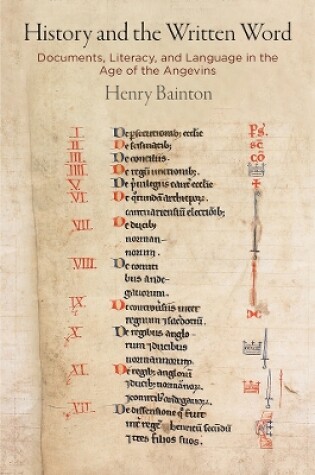 History and the Written Word
Documents, Literacy, and Language in the
Age of the Angevins
Henry Bainton
I De psecutionib; ecclie p̄s.
II De scismatib; sc̄
III De conciliis. cō
IIII De regū unctionib;
V De privilegiis cant' ecclie
VI De archiepor.
cantuariensiū electiōib;
VII De ducib;
norman
norum.
VIII De comiti
bus ande
gavorum.
IX De inter
regnum & sacdotiū.
X De regibus anglo
rum & ducibus
normannorum.
XI De regib; anglorū
& ducib; normannor,
& comitib; andegavor.
XII De dissensione q̄ fuit
int' regē henricū secundū
& tres filios suos.